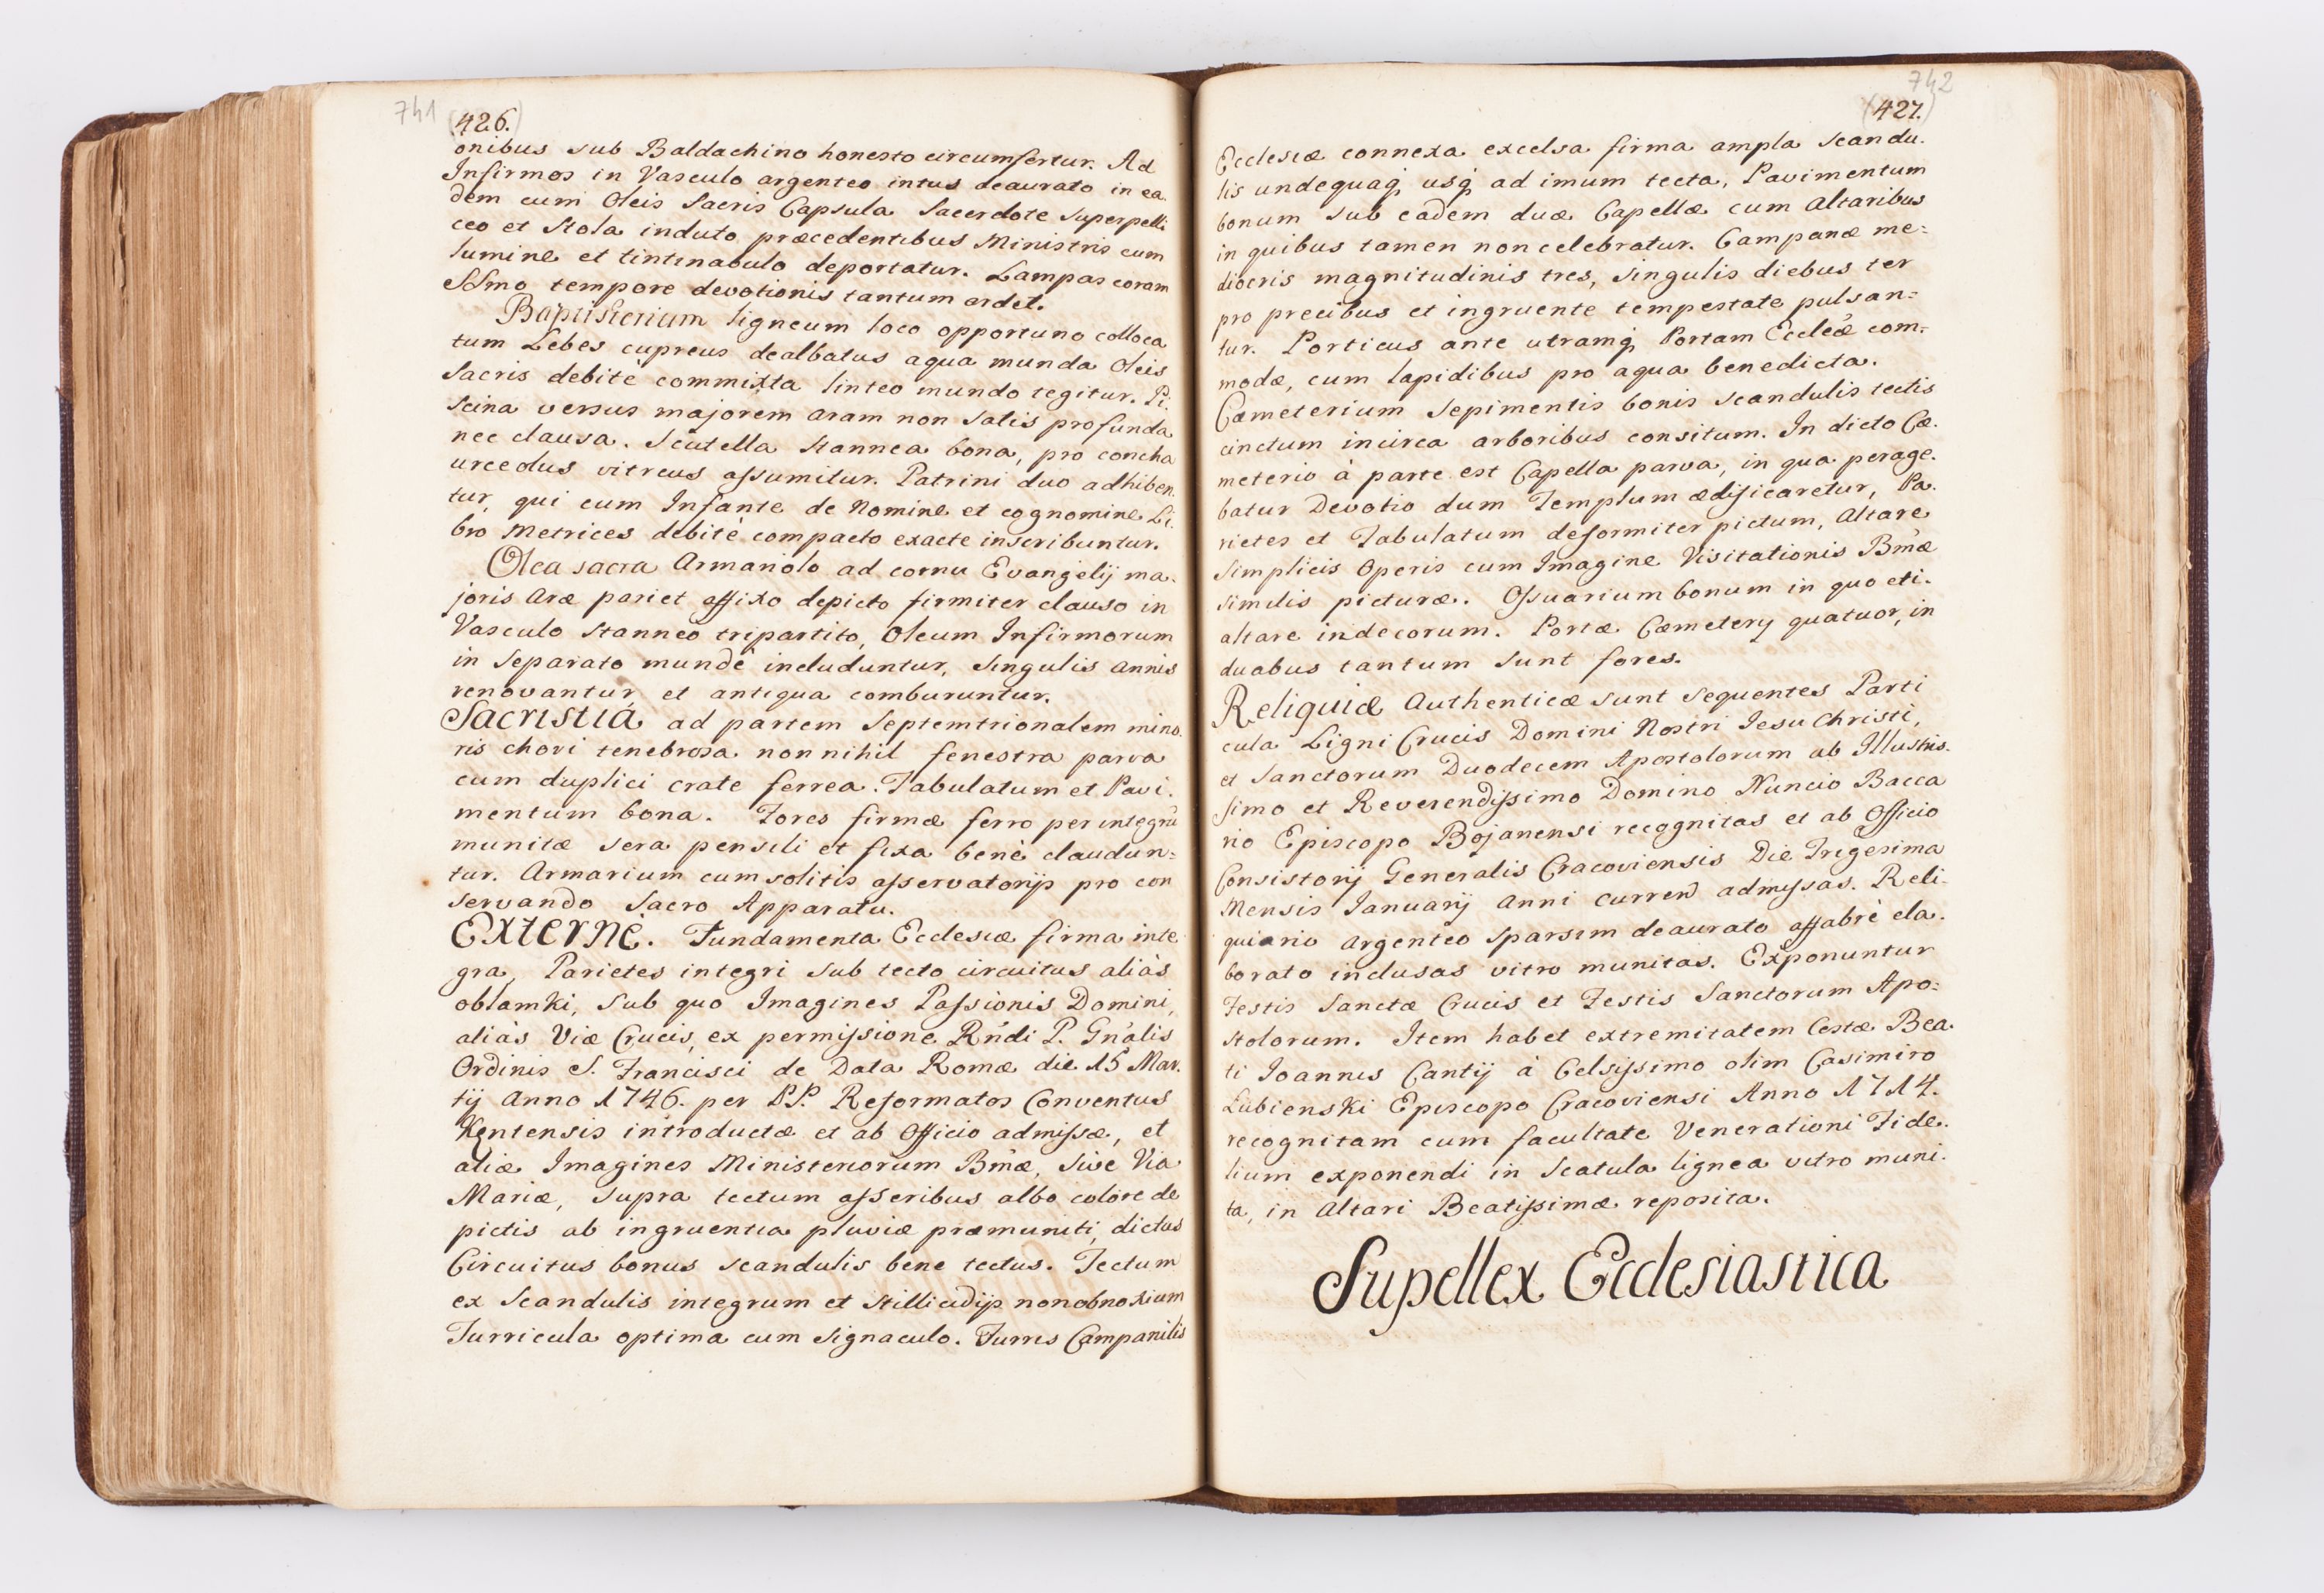 741
(426.)
onibus sub Baldachino honesto circumfertur. Ad
Infirmos in Vasculo argenteo intus deaurato in ea
dem cum Oleis Sacris Capsula Sacerdote Superpelli
ceo et Stola induto præcedentibus Ministris cum
lumine et tintinabulo deportatur. Lampas coram
SSmo tempore devotionis tantum ardet.
Baptisterium ligneum loco opportuno colloca
tum Lebes cupreus dealbatus aqua munda Oleis
Sacris debitè commixta linteo mundo tegitur. Pi.
scina versus majorem aram non satis profunda
nec clausa. Scutella stannea bona, pro concha
urceolus vitreus assumitur. Patrini duo adhiben
tur, qui cum Infante de Nomine et cognomine Li.
bro Metrices debitè compacto exacte inscribuntur.
Olea sacra Armariolo ad cornu Evangelij ma.
joris Aræ pariet affixo depicto firmiter clauso in
Vasculo stanneo tripartito, Oleum Infirmorum
in separato mundè includuntur, singulis annis
renovantur et antiqua comburuntur.
Sacristia ad partem Septemtrionalem mino.
ris chori tenebrosa nonnihil fenestra parva
cum duplici crate ferrea. Tabulatum et Pavi.
mentum bona. Fores firmæ ferro per integrũ
munitæ sera pensili et fixa benè claudun=
tur. Armarium cum solitis asservatorijs pro con
servando Sacro Apparatu.
Externè. Fundamenta Ecclesiæ firma inte
gra, Parietes integri sub tecto circuitus aliàs
obłamki, sub quo Imagines Passionis Domini,
aliàs Viæ Crucis, ex permissione Rńdi P. Gnális
Ordinis S. Francisci de Data Romæ die 15 Mar.
tij Anno 1746. per PP. Reformatos Conventus
Kentensis introductæ et ab Officio admissæ, et
aliæ Imagines Ministeriorum Bmæ, sive Via
Mariæ, supra tectum asseribus albo colore de
pictis ab ingruentia pluviæ præmuniti, dictus
Circuitus bonus scandulis bene tectus. Tectum
ex Scandulis integrum et stillicidijs nonobnoxium
Turricula optima cum signaculo. Turris Campanilis
742
(427.)
Ecclesiæ connexa excelsa firma ampla scandu.
lis undequaq; usq; ad imum tecta, Pavimentum
bonum sub eadem duæ Capellæ cum Altaribus
in quibus tamen non celebratur. Campanæ me=
diocris magnitudinis tres, singulis diebus ter
pro precibus et ingruente tempestate pulsan=
tur. Porticus ante utramq; Portam Eccleæ com=
modæ, cum lapidibus pro aqua benedicta.
Cæmeterium sepimentis bonis scandulis tectis
cinctum incirca arboribus consitum. In dicto Cæ.
meterio à parte est Capella parva, in qua perage.
batur Devotio dum Templum ædificaretur, Pa.
rietes et Tabulatum deformiter pictum, Altare
simplicis operis cum Imagine Visitationis Bmæ
similis picturæ. Ossuarium bonum in quo eti.
altare indecorum. Portæ Cæmeterij quatuor, in
duabus tantum sunt fores.
Reliquiæ Authenticæ sunt sequentes Parti
cula Ligni Crucis Domini Nostri Iesu Christi,
et Sanctorum Duodecem Apostolorum ab Illustris.
simo et Reverendissimo Domino Nuncio Bacca
rio Episcopo Bojanensi recognitas et ab Officio
Consistorij Generalis Cracoviensis Die Trigesima
Mensis Ianuarij Anni curren admissas. Reli.
quiario argenteo sparsim deaurato affabrè ela.
borato inclusas vitro munitas. Exponuntur
Festis Sanctæ Crucis et Festis Sanctorum Apo=
stolorum. Item habet extremitatem Costæ Bea.
ti Ioannis Cantij à Celsissimo olim Casimiro
Łubienski Episcopo Cracoviensi Anno 1714.
recognitam cum facultate Venerationi Fide.
lium exponendi in Scatula lignea vitro muni.
ta, in Altari Beatissimæ reposita.
Supellex Ecclesiastica